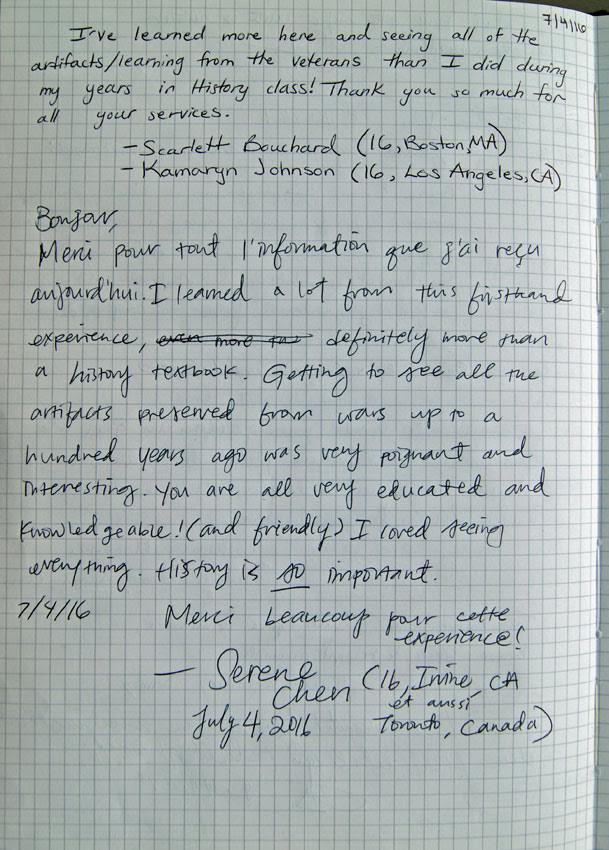 7/4/16
I've learned more here and seeing all of the
artifacts/learning from the veterans than I did during
my years in History class! Thank you so much for
all your services.
- Scarlett Bouchard (16, Boston, MA)
- Kamaryn Johnson (16, Los Angeles, CA)
Bonjour,
Merci pour tout l'information que j'ai reçu
aujourd'hui. I learned a lot from this firsthand
experience, even more tha definitely more than
a history textbook. Getting to see all the
artifacts preserved from wars up to a
hundred years ago was very poignant and
interesting. You are all very educated and
knowledgeable! (and friendly) I loved seeing
everything. History is so important.
7/4/16 Merci beaucoup pour cette
experience!
— Serene
Chen (16, Irvine, CA
et aussi
July 4, 2016 Toronto, Canada)